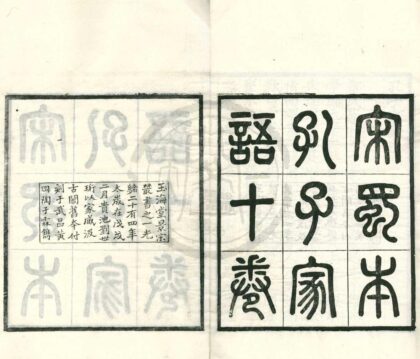 宋蜀本
孔子家
語十卷
玉海堂景宋
叢書之一光
緒二十有四年
太歲在戊戌
二月貴池劉世
珩以家藏汲
古閣舊本付
刻于武昌黃
岡陶子麟鐫